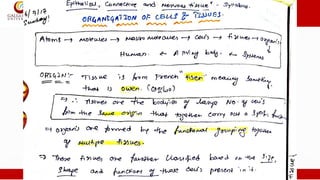 Epithelial, Connective and Nervous tissue" - Syllabus.
Sunday!
ORGANIZATION OF CELLS & TISSUES.
Atoms → molecules → macro molecules → cells → tissues → organs
Human. ← A living body. ← Systems
ORIGIN:- Tissue is from french meaning something
that is
∴ Tissues are the bodies of large No. of cells
from the same origin that together carry out a
→ organs are formed by the functional grouping together
of multiple tissues.
→ These tissues are further classified based on the size,
shape and functions of those cells present in it.